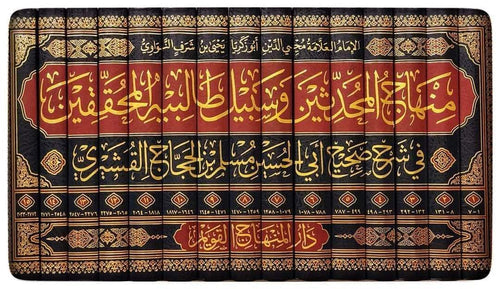 الإمام العلامة محيي الدين أبو زكريا يحيى بن شرف النواوي
منهاج المحدثين وسبيل طالبيه المحققين
في شرح صحيح أبي الحسين مسلم بن الحجاج القشيري
١ ٢ ٣ ٤ ٥ ٦ ٧ ٨ ٩ ١٠ ١١ ١٢ ١٣ ١٤ ١٥
دار المنهاج القويم